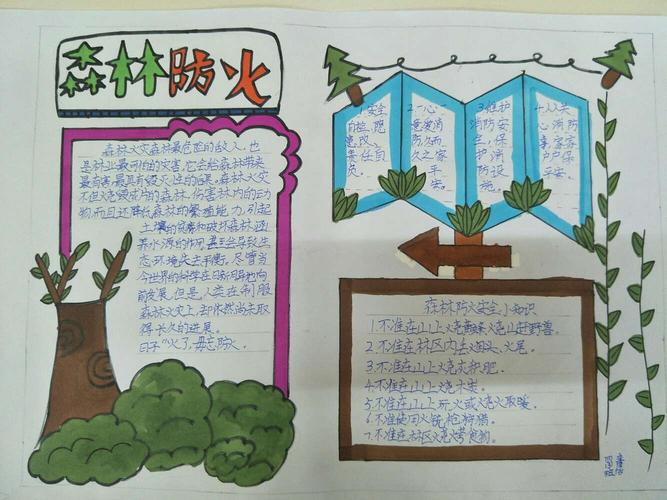 森林防火
森林火灾森林最危险的敌人,也
是林业最可怕的灾害,它会给森林带来
最有害最具有毁灭性的后果。森林火灾
不但烧毁成片的森林,伤害林内的动
物,而且还降低森林的繁殖能力,引起
土壤的贫瘠和破坏森林涵
养水源的作用,甚至会导致生
态环境失去平衡。尽管当
今世界的科学在日新月异地向
前发展,但是,人类在制服
森林火灾上,却依然尚未取
得长久的进展。
日子火了,毋忘防火。
1.安全
自检,隐
患改,
责任自
负。
2.一心一
意爱消
防,久而
久之家
平
安。
3.维护
消防安
全,保
护消
防设
施。
4.人人关
心消防
事,家家
户户保
平安。
森林防火安全小知识
1.不准在山上火烧赶野兽。
2.不准在林区内丢烟头、火尾。
3.不准在山上烧灰积肥。
4.不准在山上烧木炭。
5.不准在山上玩火或烧火取暖。
6.不准使用火铳枪狩猎。
7.不准在林区火烧烤食物。